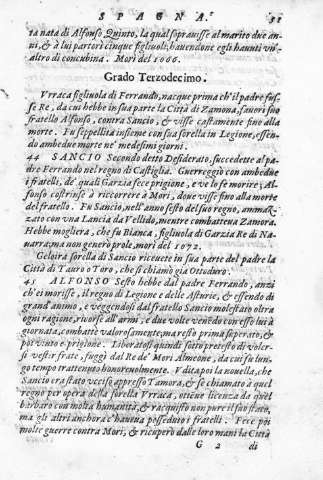 SPAGNA. 51
ta nata di Alfonso Quinto, la qual soprauisse al marito due an-
ni, & à lui partorì cinque figliuoli, hauendone egli hauuti vn'
altro di concubina. Morì del 1066.
Grado Terzodecimo.
Vrraca figliuola di Ferrando, nacque prima ch'il padre fus-
se Re, da cui hebbe in sua parte la Città di Zamona, fauerì suo
fratello Alfonso, contra Sancio, & visse castamente fino alla
morte. Fu seppellita insieme con sua sorella in Legione, essen-
do ambedue morte ne' medesimi giorni.
44 SANCIO Secondo detto Desiderato, succedette al pa
dre Ferrando nel regno di Castiglia. Guerreggiò con ambedue
i fratelli, de' quali Garzia fece prigione, e ve lo fe morire; Al-
fonso costrinse à riccorrere à Mori, doue visse fino alla morte
del fratello. Fu Sancio, nell'anno sesto del suo regno, ammaz-
zato con vna Lancia da Vellido, mentre combatteua Zamora.
Hebbe mogliera, che fu Bianca, figliuola di Garzia Re di Na-
uarra, ma non generò prole, morì del 1072.
Geloira sorella di Sancio riceuete in sua parte del padre la
Città di Tauro o Toro, che si chiamò gia Ottoduro.
45 ALFONSO Sesto hebbe dal padre Ferrando, anzi
ch'ei morisse, il regno di Legione e delle Asturie, & essendo di
grand'animo, e veggendosi dal fratello Sancio molestato oltra
ogni ragione, ricorse all'armi, e due volte venēdo con esso lui à
giornata, combattè valorosamente, ma restò prima superato, &
poi vinto e prigione. Liberatosi quindi sotto pretesto di voler-
si vestir frate, fuggì dal Re de' Mori Almeone, da cui fu lun-
go tempo trattenuto honoreuolmente. Vdita poi la nouella, che
Sancio era stato vcciso appresso Zamora, & se chiamato à quel
regno per opera della sorella Vrraca, ottēne licenza da quel
barbaro con molta humanità, & racquistò non pure il suo stato,
ma gli altri anchora c'haueua posseduto i fratelli. Fece poi
molte guerre contra Mori, & ricuperò dalle loro mani la Città
G 2 di